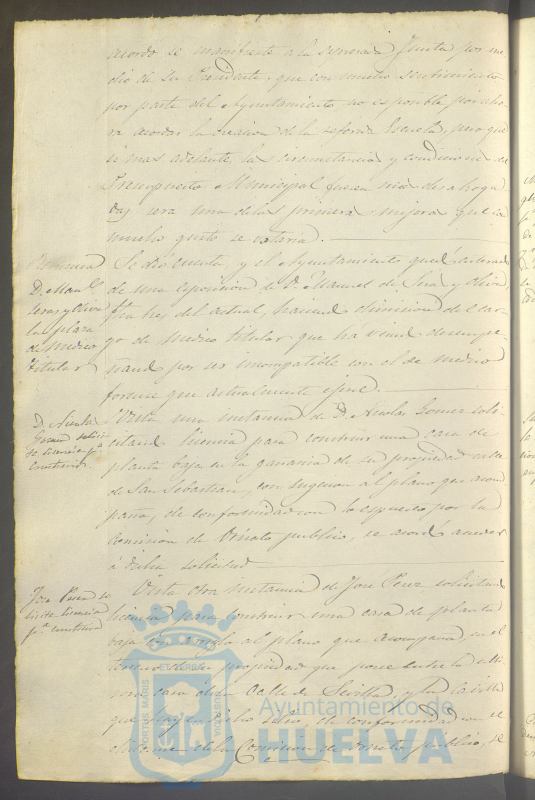 acordó se manifieste a la espresada Junta por me-
dio de su Presidente, que con mucho sentimiento
por parte del Ayuntamiento no es posible por aho-
ra acordar la creacion de la referida Escuela, pero que
si mas adelante las circunstancias y condiciones del
Presupuesto Municipal fuesen mas desahoga-
das sera una de las primeras mejoras que con
mucho gusto se votaria.
Renuncia
D. Man.l
y Oliva
la plaza
de Medico
titular
Se dio cuenta, y el Ayuntamiento quedó enterado
de una esposicion de D. Manuel de y Oliva,
fha tres del actual, haciendo dimision del car-
go de Medico titular que ha venido desempe-
ñando por ser incompatible con el de medico
forense que actualmente ejerce.
D. Nicolas
Gomez solici-
ta licencia p.a
construir
Vista una instancia de D. Nicolas Gomez soli-
citando licencia para construir una casa de
planta baja en la de su propiedad calle
de San Sebastian, con sugecion al plano que acom-
paña, de conformidad con lo espuesto por la
Comision de Ornato publico, se acordó acceder
á dicha solicitud
Jose Perez so-
licita licencia
p.a construir
Vista otra instancia de José Perez solicitando
licencia para construir una casa de planta
baja con arreglo al plano que acompaña, en el
terreno de su propiedad que posee entre la ulti-
ma casa de la Calle de Sevilla, y la
que hay en dicho sitio, de conformidad con el
dictamen de la Comision de ornato publico, se
PORTUS MARIS ET TERRAE CUSTODIA
Ayuntamiento de
HUELVA